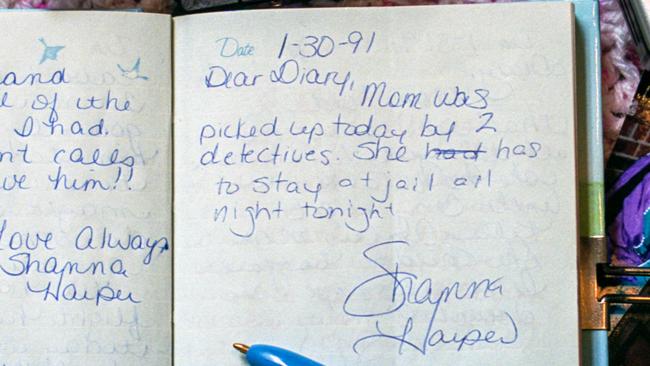 and
e of the
I had.
nt calls
ve him!!
Love Always
Shanna
Harper
Date 1-30-91
Dear Diary,
Mom was
picked up today by 2
detectives. She had has
to stay at jail all
night tonight
Shanna
Harper